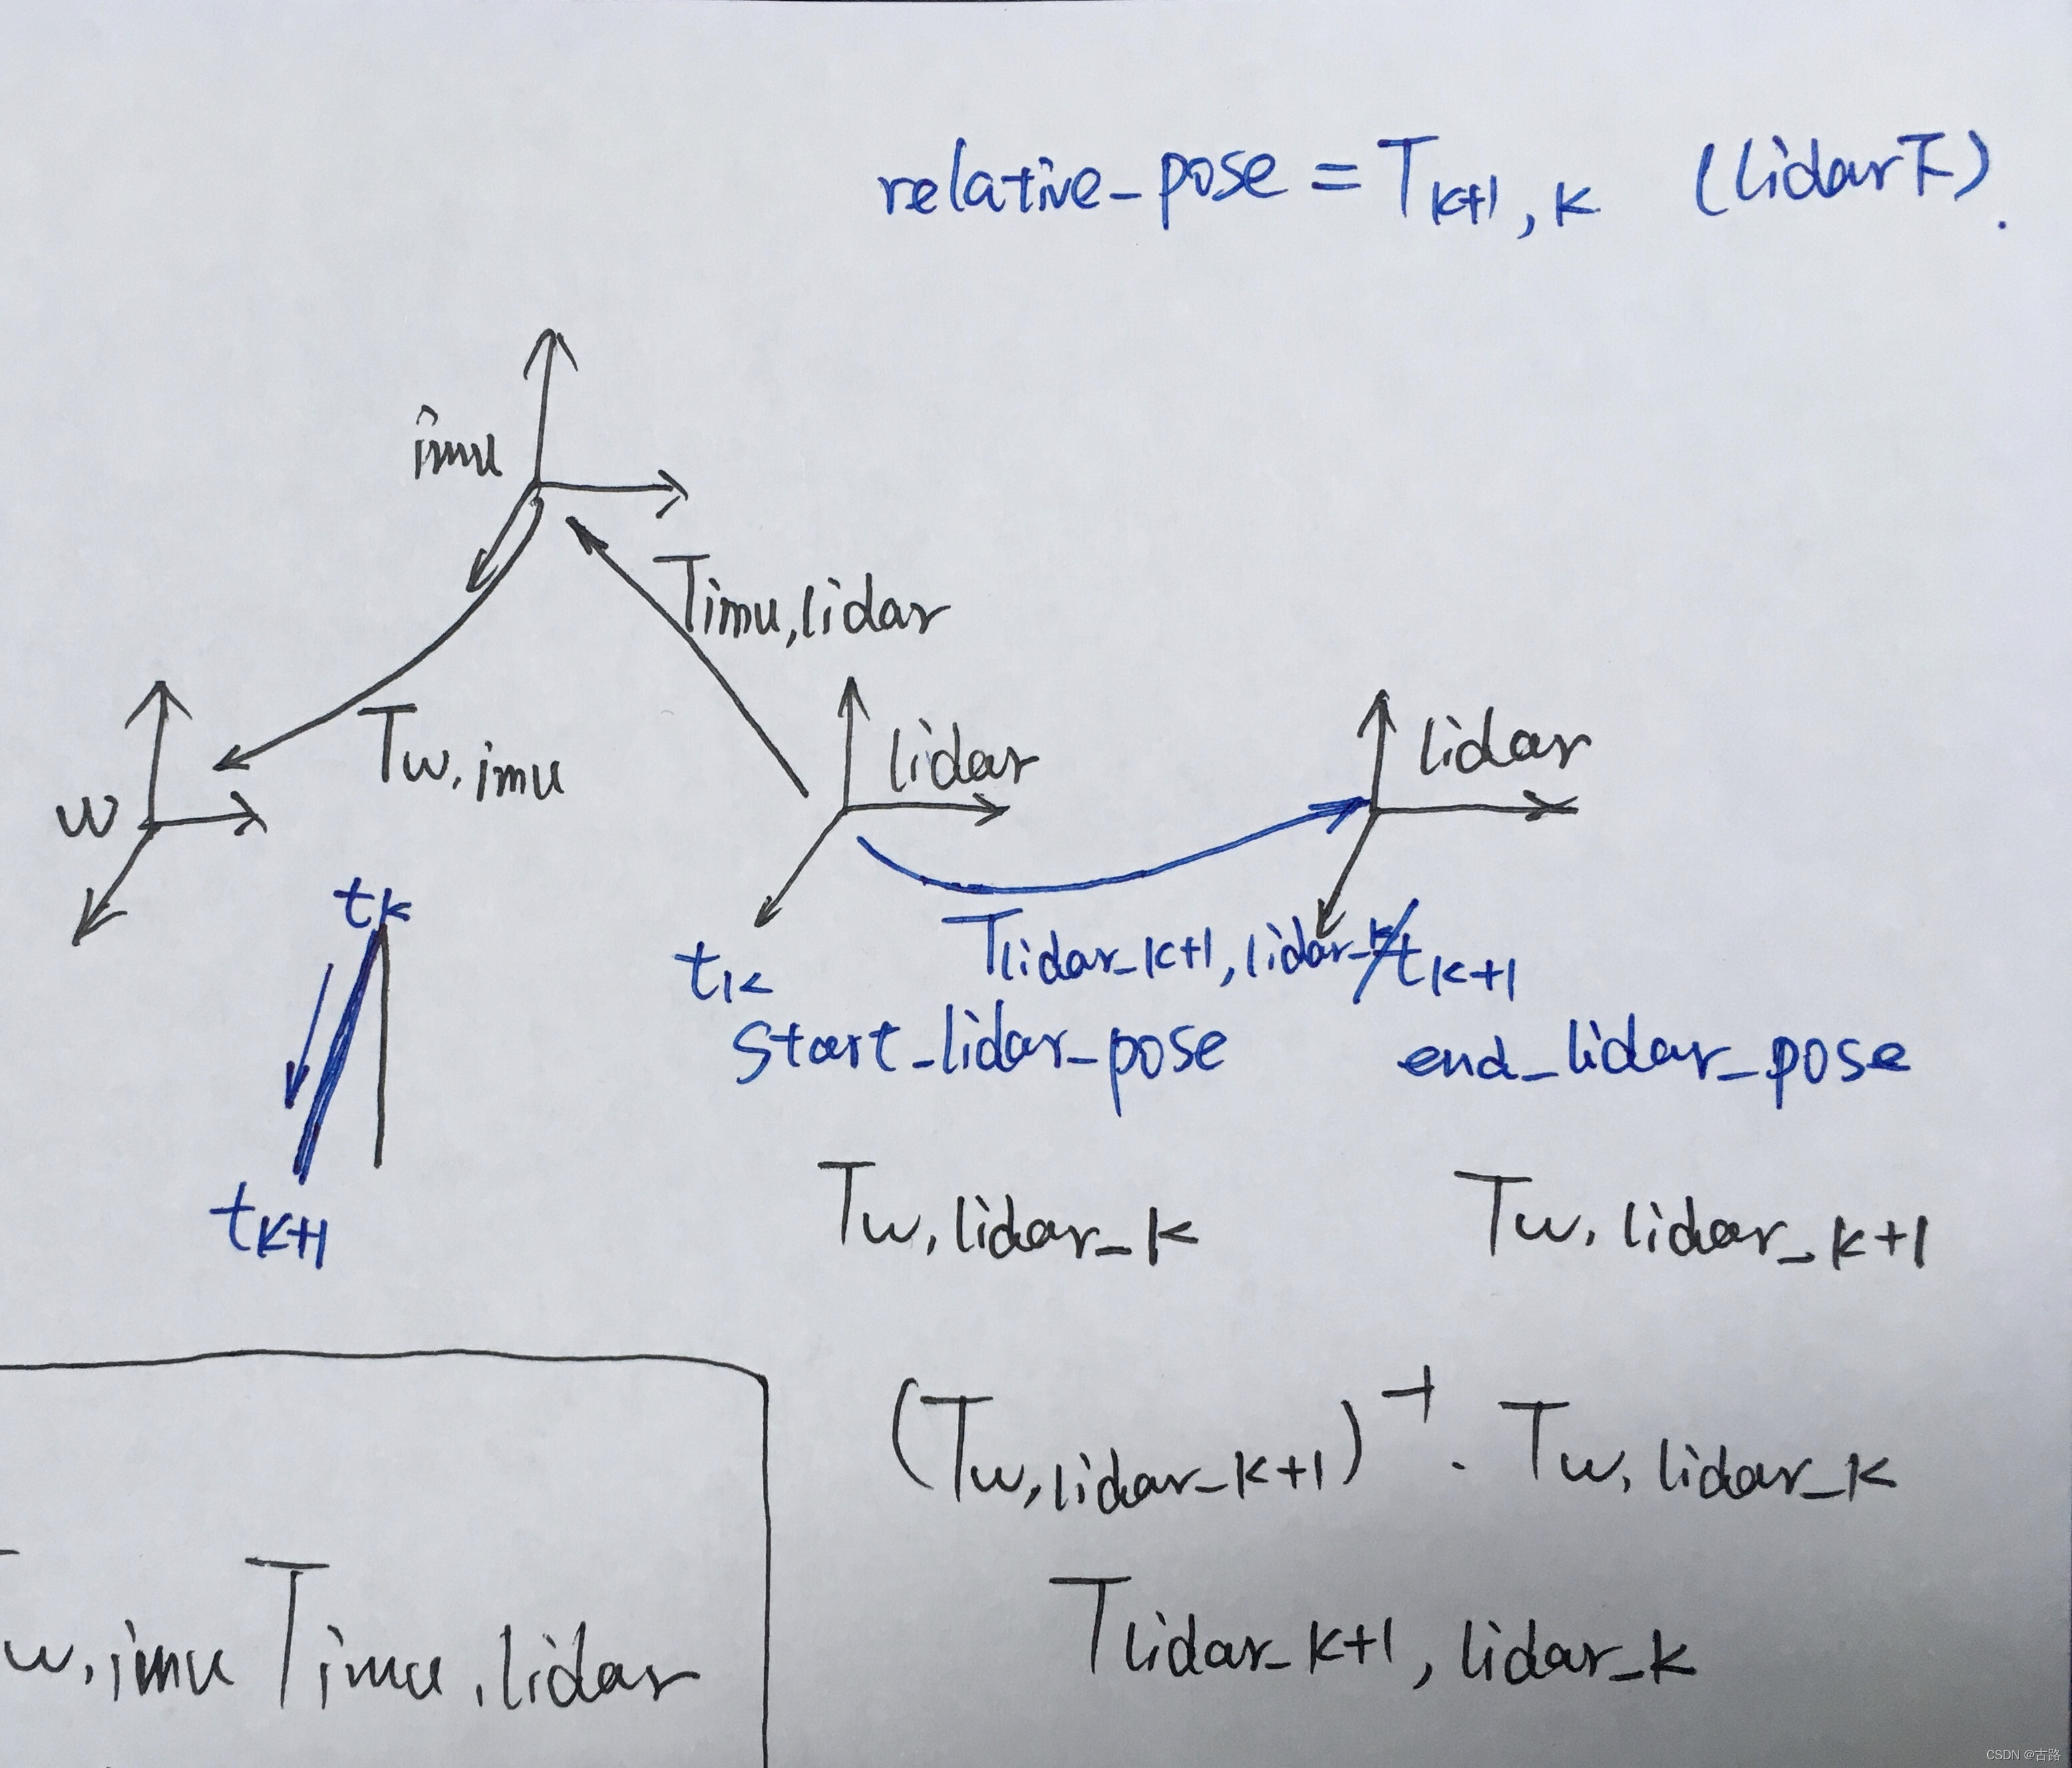 relative_pose = T k+1, k (lidar下).
imu
T imu,lidar
lidar
lidar
T w,imu
w
tk
T lidar_k+1, lidar_k
tk
tk+1
start_lidar_pose
end_lidar_pose
tk+1
T w,lidar_k
T w,lidar_k+1
(T w,lidar_k+1)⁻¹ · T w,lidar_k
w,imu T imu,lidar
T lidar_k+1, lidar_k
CSDN @古路